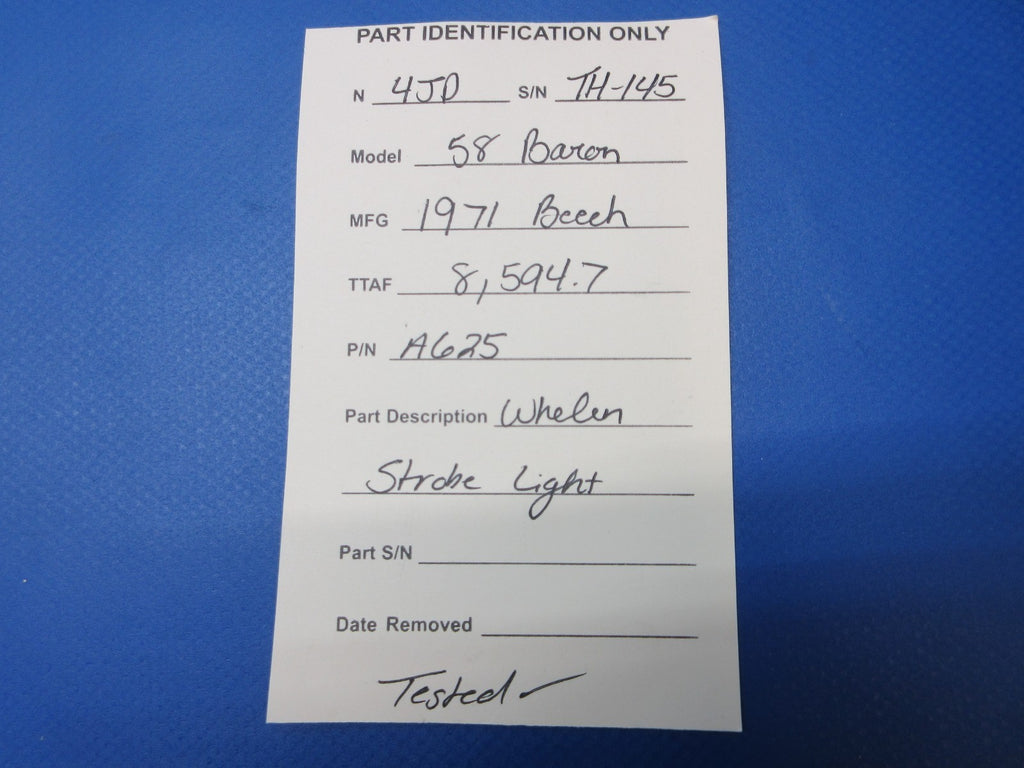 PART IDENTIFICATION ONLY
N 4JD S/N TH-145
Model 58 Baron
MFG 1971 Beech
TTAF 8,594.7
P/N A625
Part Description Whelen
Strobe Light
Part S/N
Date Removed
Tested ✓